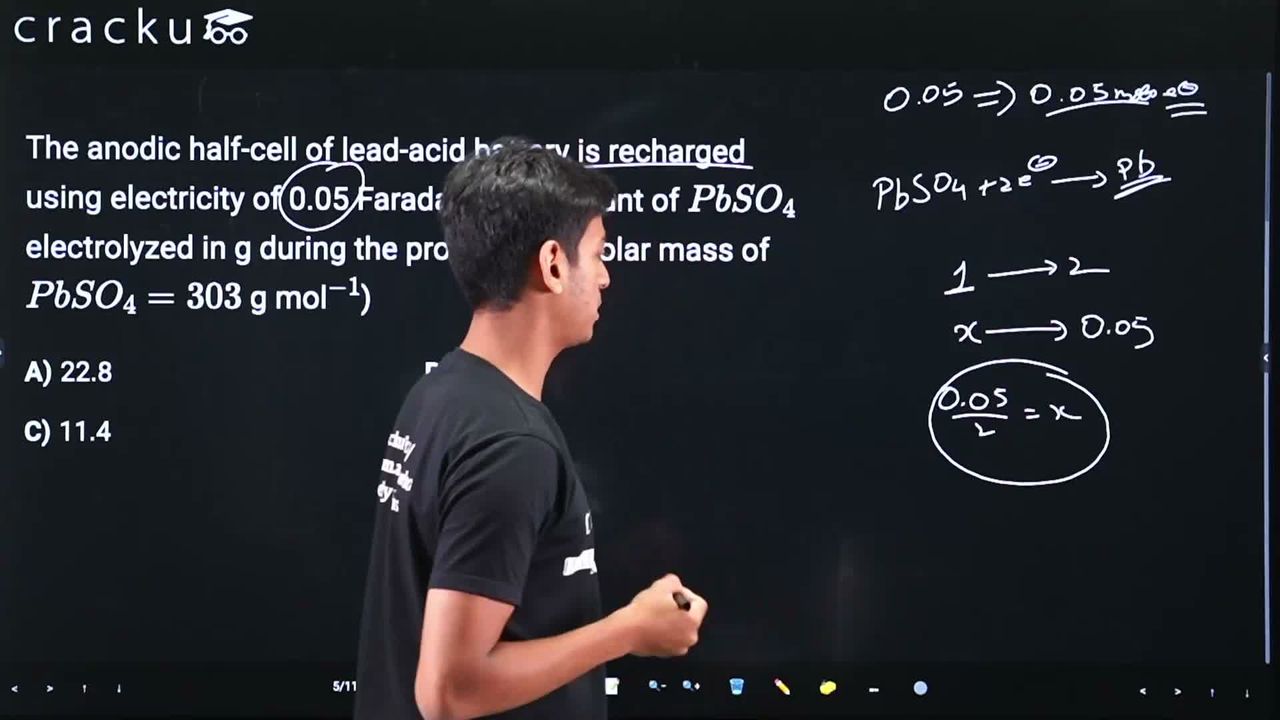 cracku
The anodic half-cell of lead-acid is recharged
using electricity of 0.05 of PbSO₄
electrolyzed in g during the mass of
PbSO₄ = 303 g mol⁻¹)
A) 22.8
C) 11.4
0.05 ⇒ 0.05
PbSO4 + 2e⊖ → Pb
1 → 2
x → 0.05
0.05/2 = x
5/11